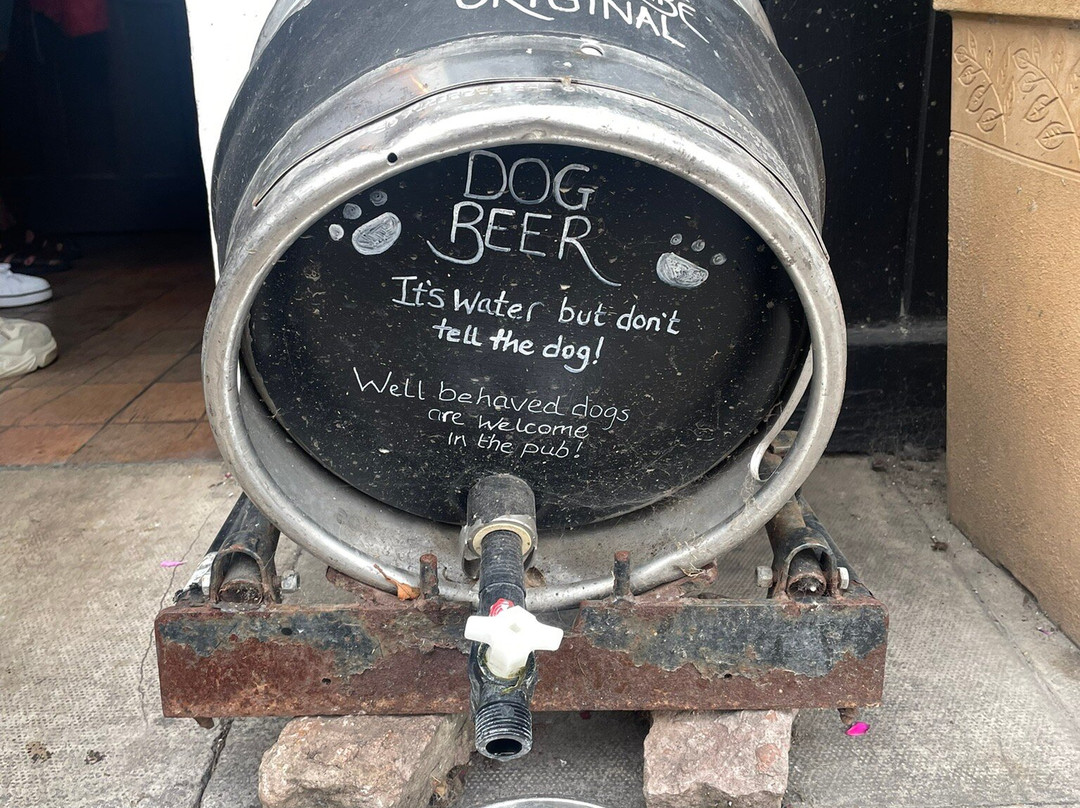 ORIGINAL
DOG
BEER
It's water but don't
tell the dog!
Well behaved dogs
are welcome
in the pub!